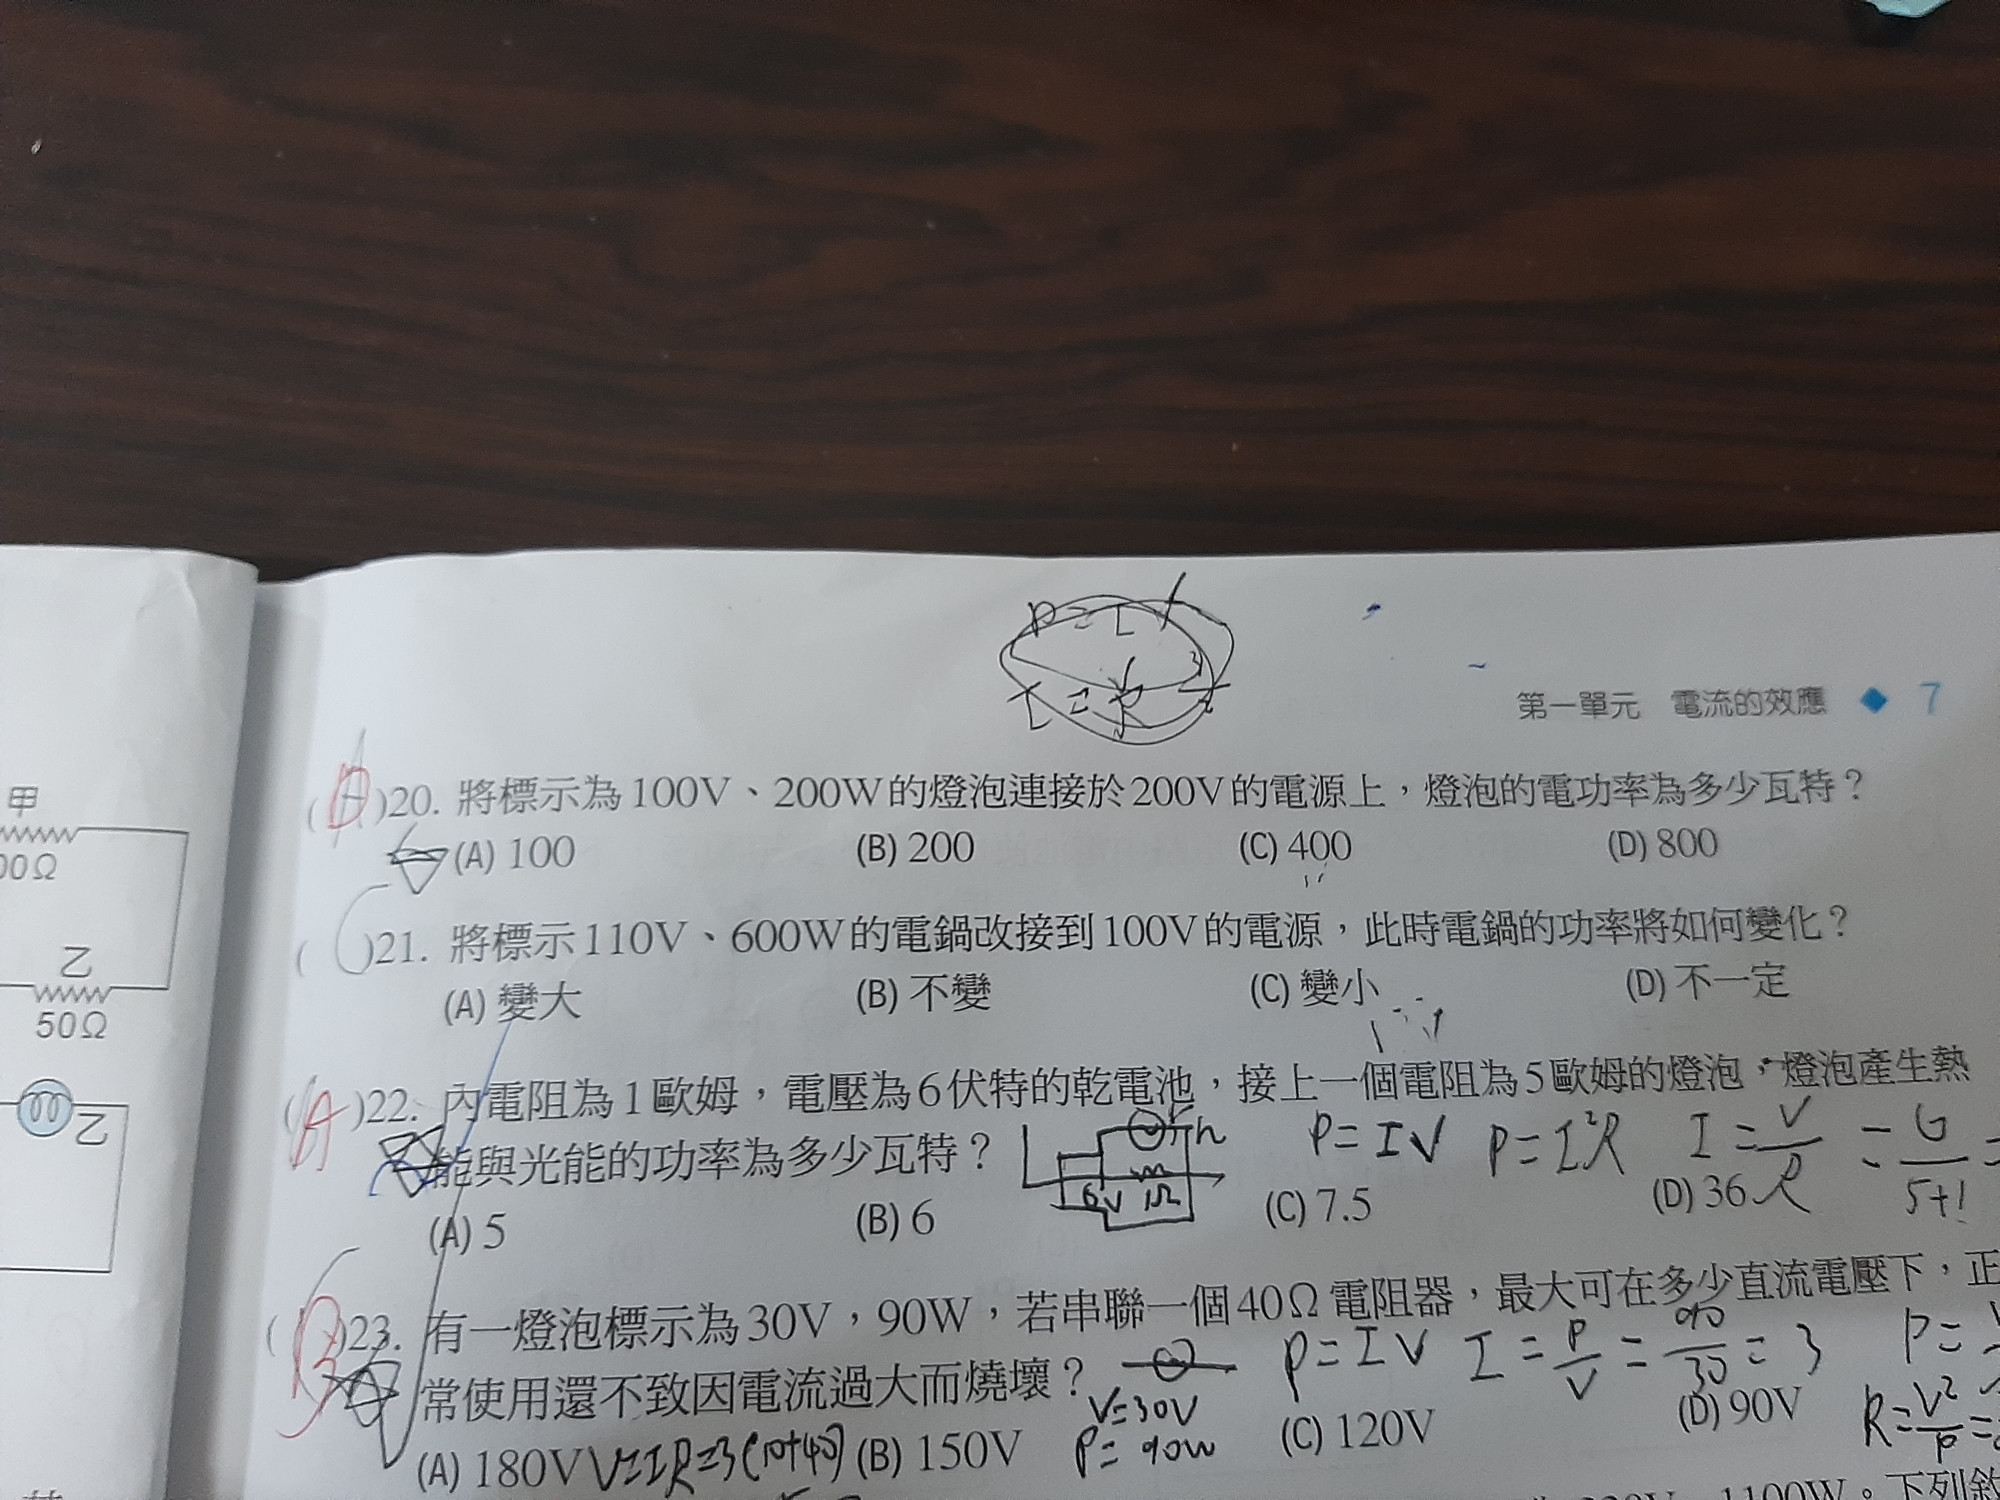 P = I V
第一單元 電流的效應 ◆ 7
甲
00Ω
乙
50Ω
乙
( D )20. 將標示為100V、200W的燈泡連接於200V的電源上，燈泡的電功率為多少瓦特？
(A) 100 (B) 200 (C) 400 (D) 800
( C )21. 將標示110V、600W的電鍋改接到100V的電源，此時電鍋的功率將如何變化？
(A) 變大 (B) 不變 (C) 變小 (D) 不一定
( A )22. 內電阻為1歐姆，電壓為6伏特的乾電池，接上一個電阻為5歐姆的燈泡，燈泡產生熱
能與光能的功率為多少瓦特？
6V 1Ω
P = IV P = I²R I = V/R = 6/5+1 =
(A) 5 (B) 6 (C) 7.5 (D) 36
( B )23. 有一燈泡標示為30V，90W，若串聯一個40Ω電阻器，最大可在多少直流電壓下，正
常使用還不致因電流過大而燒壞？
P = IV I = P/V = 90/30 = 3 P =
V=30V
P= 90W
R = V²/P =
(A) 180V V=IR=3(10+40) (B) 150V (C) 120V (D) 90V
1100W。下列敘